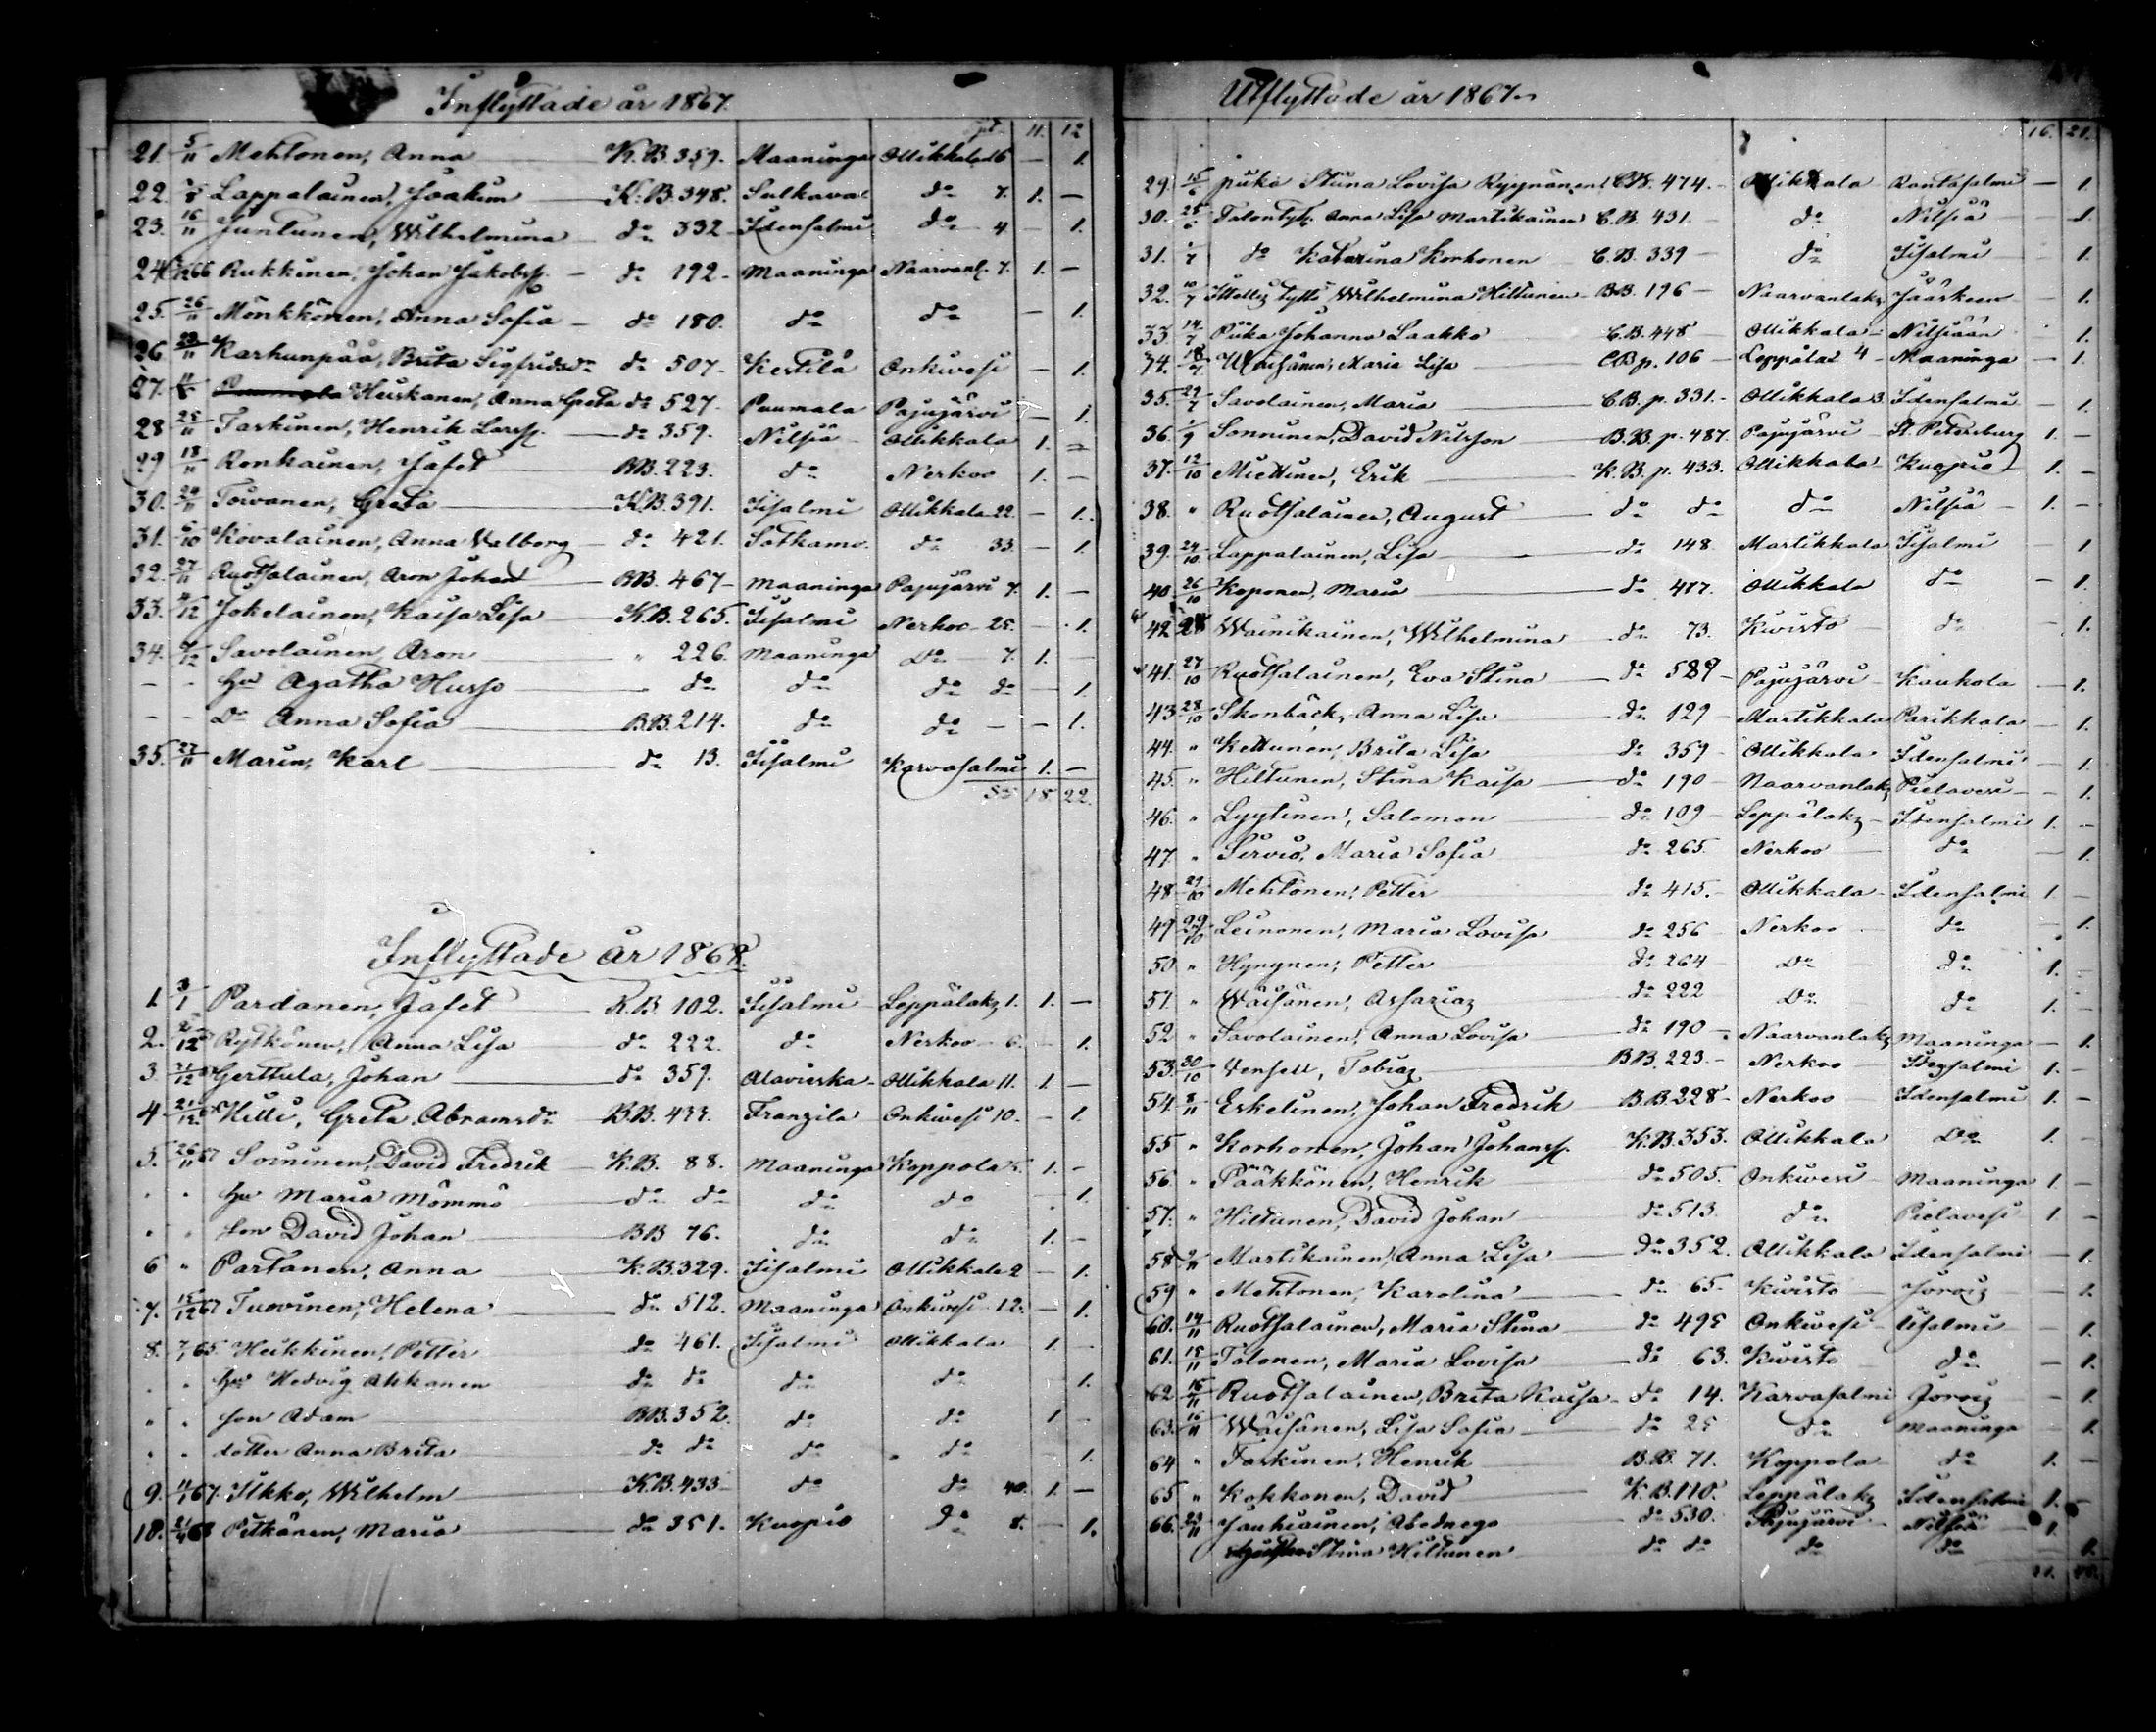 Inflyttade år 1867.
11. 12
21. 5/11 Mehtonen, Anna K.B. 359. Maaninga Ollikkala 16 — 1.
22. Lappalainen, Joakim K.B. 348. Sulkava do 7. 1. —
23. 16/11 Juntunen, Wilhelmina do 332 Idensalmi do 4 — 1.
24. Rukkinen, Johan Jakobss. do 192 Maaninga Naarvanl. 7. 1. —
25. 26/11 Mönkkönen, Anna Sofia do 180. do do — 1.
26. 23/11 Karhunpää, Brita Sigfridsdr do 507 Kestilä Onkivesi — 1.
27. Heiskanen, Anna Greta do 527 Puumala Pajujärvi — 1.
28 25/11 Taskinen, Henrik Larss. do 359. Nilsiä Ollikkala 1. —
29 18/11 Ronkainen, Jafet BB. 223. do Nerkoo 1. —
30. 20/11 Toivanen, Greta K.B. 391. Iisalmi Ollikkala 22. — 1.
31. 6/10 Kovalainen, Anna Valborg do 421. Sotkamo. do 33. — 1.
32. 27/11 Ruotsalainen, Aron Johan BB. 467 Maaninga Pajujärvi 7. 1. —
33. 4/12 Jokelainen, Kaisa Lisa K.B. 265. Iisalmi Nerkoo 25. — 1.
34. Savolainen, Aron " 226. Maaninga Do 7. 1. —
— - hu Agatha Husso do do do do — 1.
— - Do Anna Sofia BB. 214. do do — — 1.
35. 27/11 Marin, Karl do 13. Iisalmi Karvasalmi 1. —
S:a 18. 22.
Inflyttade år 1868.
1. 3/1 Pardanen, Jafet K.B. 102. Iisalmi Leppälaks 1. 1. —
2. Rytkönen, Anna Lisa do 222. do Nerkoo 6. — 1.
3. 21/12 Gerttula, Johan do 359. Alavieska Ollikkala 11. 1. —
4 21/12 Hilli, Greta Abramsdr BB. 433. Franzila Onkivesi 10. — 1.
5. 26/11 67 Soininen, David Fredrik K.B. 88. Maaninga Koppola 5. 1. —
" " hu Maria Mömmö do do do do — 1.
" " son David Johan BB 76. do do 1. —
6 " Partanen, Anna K.B. 329. Iisalmi Ollikkala 2 — 1.
7. 15/12 67 Tuovinen, Helena do 512. Maaninga Onkivesi 12. — 1.
8. Heikkinen, Petter do 461. Iisalmi Ollikkala 1. -
" " hu Hedvig Ahkanen do do do do 1.
" " son Adam BB. 352. do do 1 —
" " dotter Anna Brita do do do do 1.
9. Ilkko, Wilhelm K.B. 433 do do 40. 1. —
10. Pitkänen, Maria do 351. Kuopio do 8. — 1.
Utflyttade år 1867.
16. 21.
29. 15/6 piika Stina Lovisa Ryynänen C.B. 474. Ollikkala Rantasalmi — 1.
30. 25/6 Anna Lisa Martikainen C.B. 431. do Nilsiä — 1.
31. 1/7 do Katarina Korhonen C.B. 339 do Iisalmi 1.
32. 10/7 tyttö Wilhelmina Hiltunen BB. 196 Naarvanlaks Jääskeen 1.
33. 14/7 Piika Johanna Laakko C.B. 448 Ollikkala Nilsiään 1.
34. 18/7 Väisänen, Maria Lisa CB p. 106 Leppälax 4 Maaninga — 1.
35. 22/7 Savolainen, Maria C.B. p. 331. Ollikkala 3 Idensalmi — 1.
36. 1/9 Sonninen, David Nilsson B.B. p. 487. Pajujärvi St. Petersburg 1. —
37. 12/10 Miettinen, Erik K.B. p. 433. Ollikkala Kuopio 1. —
38. " Ruotsalainen, August do do do Nilsiä 1. —
39. 24/10 Lappalainen, Lisa do 148. Martikkala Iisalmi 1
40. 26/10 Koponen, Maria do 417. Ollikkala do — 1.
42. Wainikainen, Wilhelmina do 73. Kivistö do — 1.
41. 27/10 Ruotsalainen, Eva Stina do 529 Pajujärvi Kaukola — 1.
43 28/10 Skonbäck, Anna Lisa do 129 Martikkala Parikkala — 1.
44. " Kettunen, Brita Lisa do 359 Ollikkala Idensalmi — 1.
45. " Hiltunen, Stina Kaisa do 190 Naarvanlaks Pielavesi — 1.
46. " Lyytinen, Salomon do 109 Leppälaks Idensalmi 1. —
47. " Serviö, Maria Sofia do 265. Nerkoo do — 1.
48 29/10 Mehtonen, Petter do 415. Ollikkala Idensalmi 1 —
49 29/10 Leinonen, Maria Lovisa do 256 Nerkoo do — 1.
50 " Hyngnen, Petter do 264 Do do 1. —
51. " Wäisänen, Assarias do 222 Do do 1. —
52. " Savolainen, Anna Lovisa do 190 Naarvanlaks Maaninga — 1.
53. 30/10 Tobias BB. 223. Nerkoo Idensalmi 1. —
54. 8/11 Eskelinen, Johan Fredrik B.B. 228 Nerkoo Idensalmi 1. —
55 " Korhonen, Johan Johanss. K.B. 353. Ollikkala Do 1. —
56. " Pääkkönen, Henrik do 505. Onkivesi Maaninga 1. —
57. " Hiltunen, David Johan do 513. do Pielavesi 1. —
58 9/11 Martikainen, Anna Lisa do 352. Ollikkala Idensalmi — 1.
59 " Mehtonen, Karolina do 65. Kivistö Jorois — 1.
60. 14/11 Ruotsalainen, Maria Stina do 495 Onkivesi Iisalmi — 1.
61. 15/11 Tolonen, Maria Lovisa do 63. Kivistö do — 1.
62. 16/11 Ruotsalainen, Brita Kaisa do 14. Karvasalmi Jorois — 1.
63. 16/11 Wäisänen, Lisa Sofia do 25 do Maaninga — 1.
64 " Taskinen, Henrik B.B. 71. Koppola do 1. —
65 " Kokkonen, David K.B. 110. Leppälaks Idensalmi 1. —
66. 23/11 Jauhiainen, Abednego do 530. Pajujärvi Nilsiä 1.
Stina Hiltunen do do do do 1.